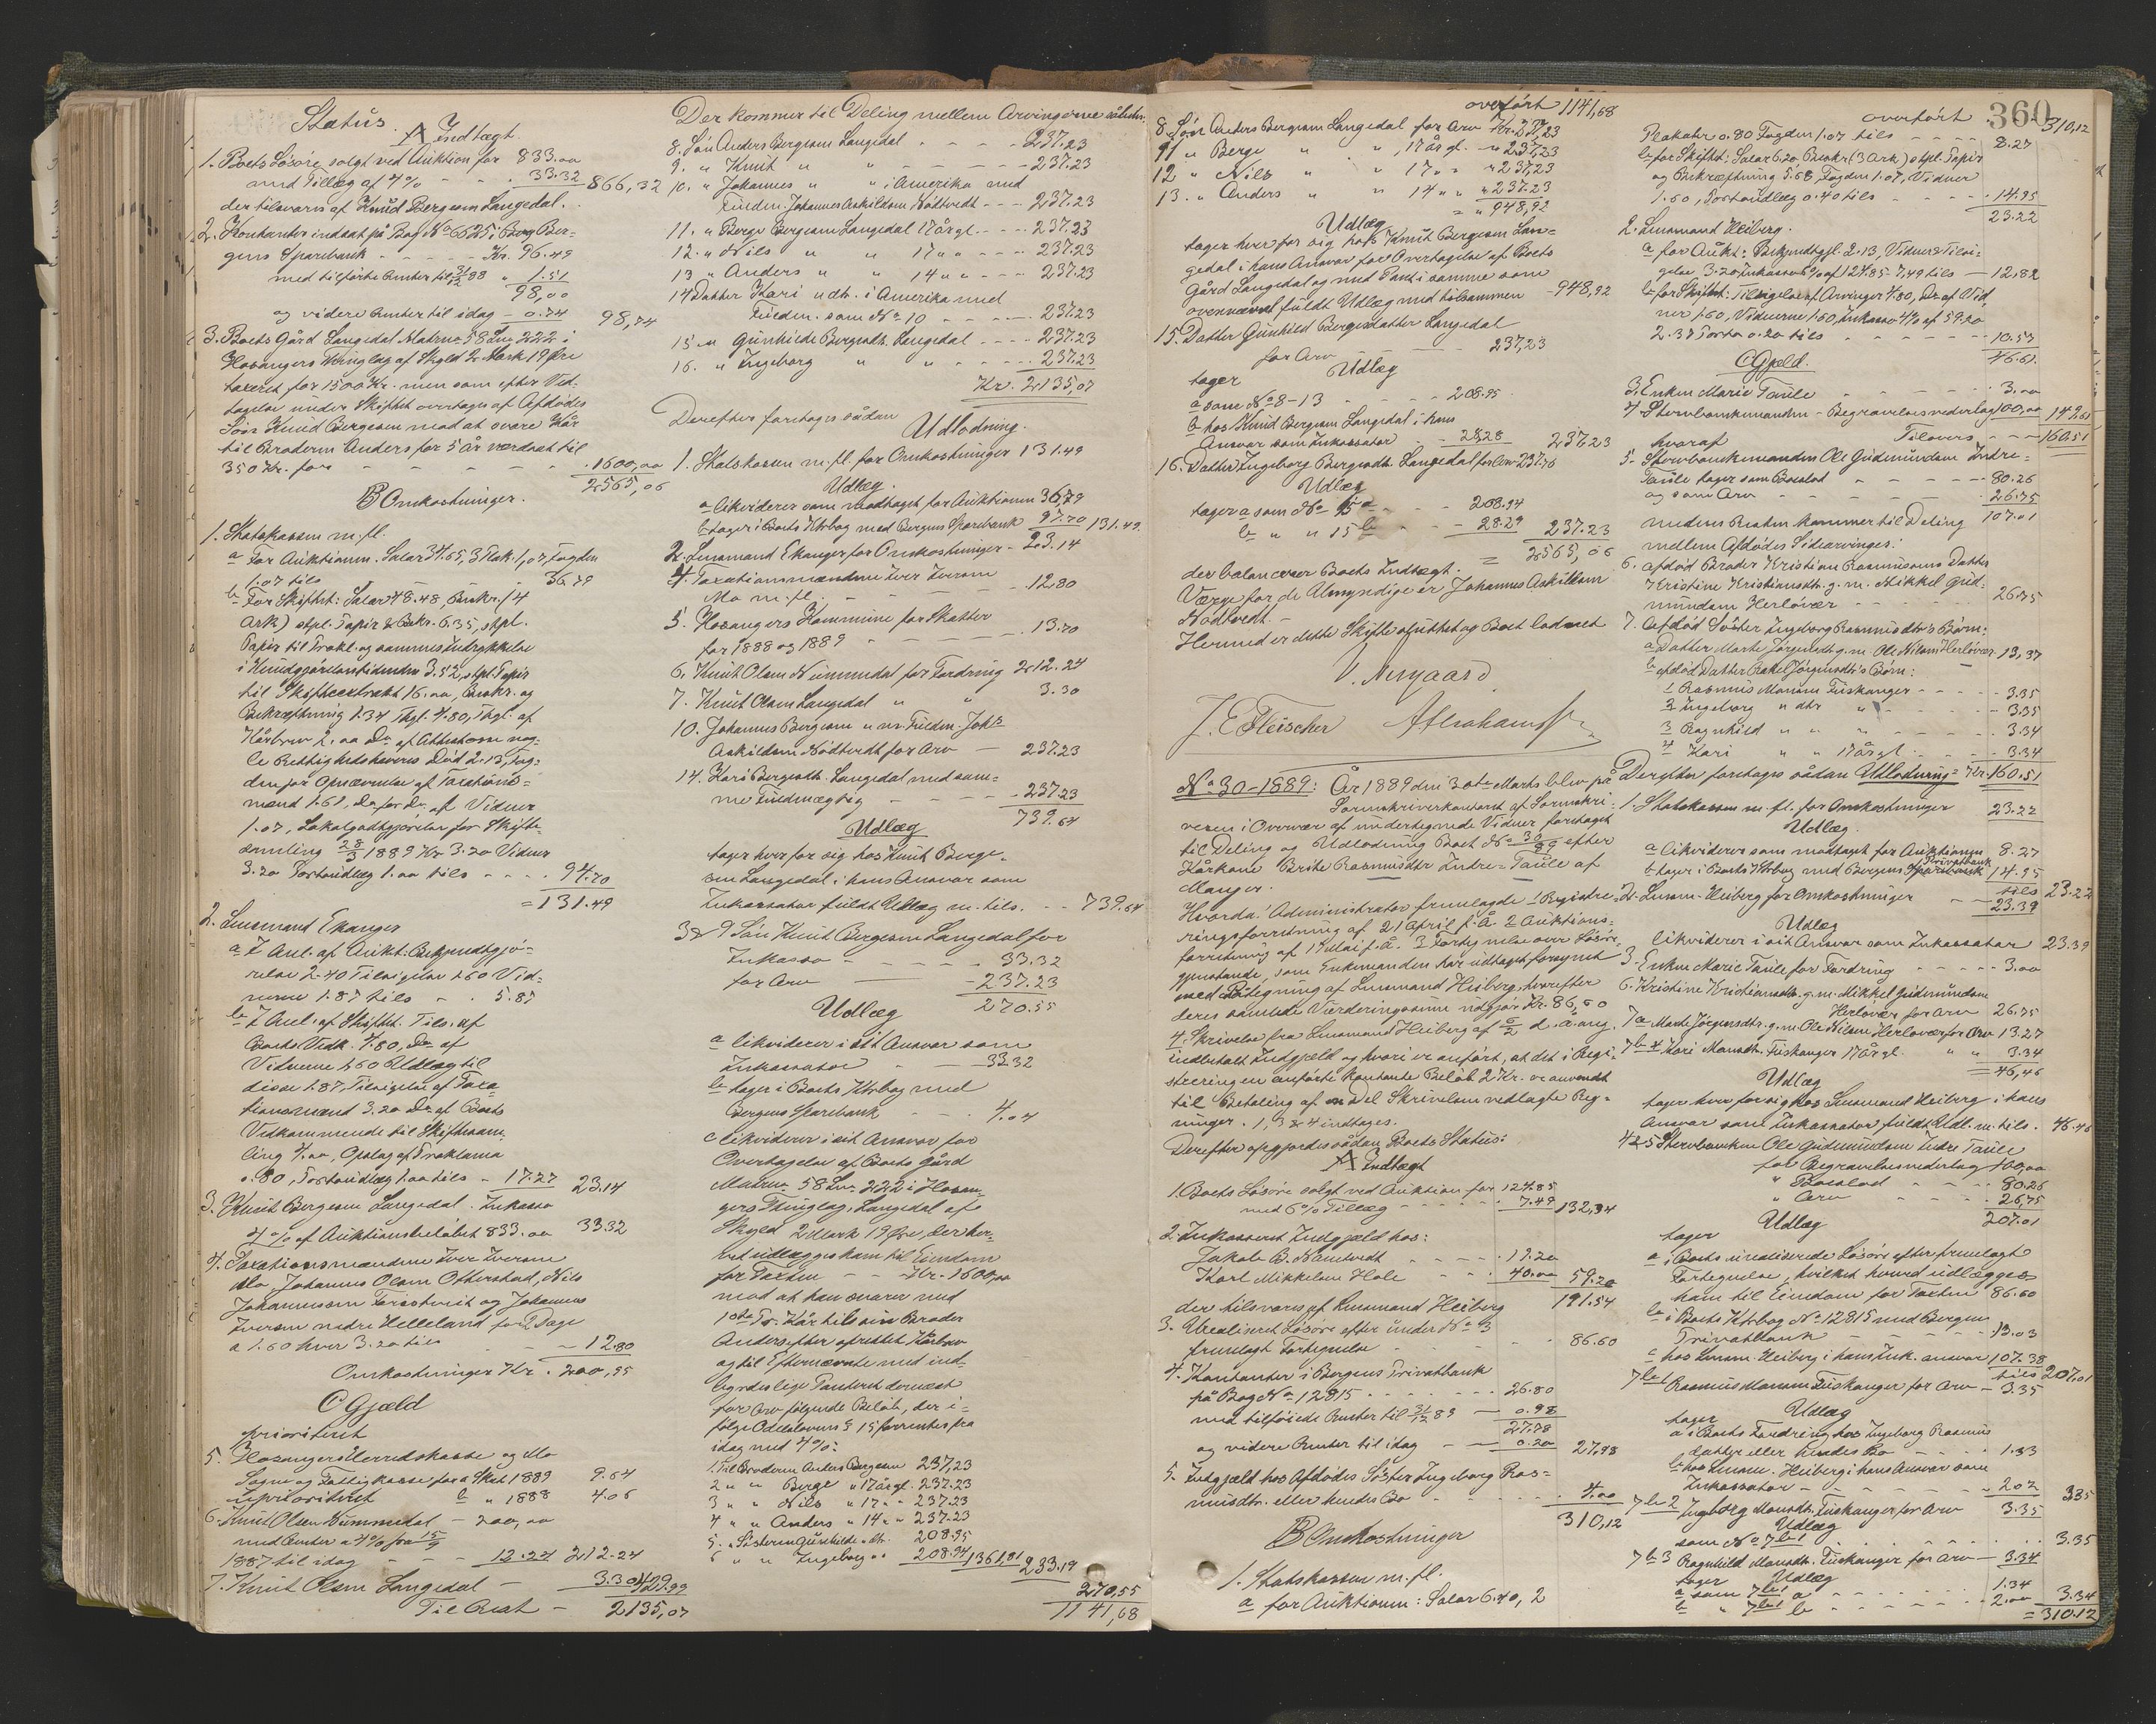 Status.
A Indtægt.
1. Boets Løsøre solgt ved Auktion for 833.00
med Tillæg af 4% - - - 33.32 866,32
der tilsvares af Knud Bergesen Langedal.
2. Kontanter indsat på Bog No 6625 i Bergens
Sparebank - - - - Kr. 96.49
med tilførte Renter til 31/12 88 " 1.51
98,00
og videre Renter til idag - 0.74 98,74
3. Boets Gård Langedal Matrno 58 Lno 222 i
Hosangers Thinglag af Skyld 2 Mark 19 Øre
taxeret for 1500 Kr. men som efter Ved-
tagelse under Skiftet overtages af Afdødes
Søn Knud Bergesen mod at svare Kår
til Broderen Anders for 5 år værdsat til
350 Kr. for - - - - - - 1600,00
2565,06
B Omkostninger.
1. Statskassen m.fl.
a For Auktionen. Salær 34.65, 3 Plak. 1,07 Fogden
1.07 tils - - - 36.79
b For Skiftet: Salær 48.48, Beskr. (4
Ark) stpl. Papir & Bekr. 6.35, stpl.
Papir til Prokl. og sammes Indrykkelse
i Kundgjørelsestidenden 3.52, stpl. Papir
til Skifteextrakt 16.00, Beskr. og
Bekræftning 1.34 Thgl. 4.80, Thgl. af
Kårbrev 2.00 Do af Attesterne nog-
le Rettighedshaveres Død 2.13, Fog-
den for Opnævnelse af Taxations-
mænd 1.61, Do for Do af Vidner
1.07, Lokalgodtgjørelse for Skifte-
samling 28/3 1889 Kr 3.20 Vidner
3.20 Portoudlæg 1.00 tils - - - 94.70
= 131.49
2. Lensmand Ekanger
a I Anl. af Aukt. Bekjendtgjø-
relse 2.40 Tilsigelse 1.60 Vid-
nerne 1.87 tils - - 5.87
b I Anl. af Skiftet. Tils. af
Boets Vedk. 4.80, Do af
Vidnerne 1.60 Udlæg til
disse 1.87, Tilsigelse af Taxa
tionsmænd 3.20 Do af Boets
Vedkommende til Skiftesam-
ling 4.00, Opslag af Proklama
0.80, Portoudlæg 1.00 tils - 17.27 23.14
3. Knut Bergesen Langedal. Inkasso
4% af Auktionsbeløbet 833.00 33.32
4. Taxationsmændene Iver Iversen
Mo, Johannes Olsen Otterstad, Nils
Johannessen Tveiterid og Johannes
Iversen nedre Helleland for 2 Dage
a 1.60 hver 3.20 tils - - 12.80
Omkostninger Kr. 200,95
C Gjæld
prioriteret
5. Hosangers Herredskasse og Mo
Sogns og Fattigkasse for a Skat 1889 9.64
uprioriteret b " 1888 4.06
6. Knut Olsen Nummedal - 200,00
med Renter a 4% fra 15/9
1887 til idag - - - 12.24 212.24
7. Knut Olsen Langedal - 3.30 429.99
Til Rest - 2135,07
Der kommer til Deling mellem Arvingerne således:
8. Søn Anders Bergesen Langedal - - - - 237.23
9. " Knut " " - - - - 237.23
10. " Johannes " " i Amerika med
Fuldm. Johannes Askildsen Nødtvedt - - - 237.23
11. " Berge Bergesen Langedal 17 år gl. - - - 237.23
12. " Nils " " 17 " " - - - 237.23
13 " Anders " " 14 " " - - - 237.23
14 Datter Kari " dtr. i Amerika med
Fuldm. som No 10 - - - - 237.23
15 " Gunhilde Bergesdtr. Langedal - - - 237.23
16. " Ingeborg " " - - - - 237.23
Kr. 2135,07
Derefter foretages sådan
Udlodning.
1. Statskassen m.fl. for Omkostninger 131.49
Udlæg.
a likviderer som modtaget for Auktionen 36,79
b tager i Boets Ktrbog med Bergens Sparebank 94.70 131.49
2. Lensmand Ekanger for Omkostninger - 23.14
4. Taxationsmændene Iver Iversen
Mo m.fl. - - - - - 12.80
5. Hosangers Kommune for Skatter
for 1888 og 1889 - - - - 13.70
6. Knut Olsen Nummedal for Fordring 212.24
7. Knut Olsen Langedal " " 3.30
10. Johannes Bergesen " ver Fuldm. Johs
Askildsen Nødtvedt for Arv - 237.23
14. Kari Bergesdtr. Langedal med sam-
me Fuldmægtig - - - - 237.23
739.64
Udlæg
tager hver for sig hos Knut Berge-
sen Langedal i hans Ansvar som
Inkassator fuldt Udlæg m. tils. - - 739.64
3 & 9 Søn Knut Bergesen Langedal for
Inkasso - - - - - 33.32
for Arv - - - 237.23
270.55
Udlæg
a likviderer i sit Ansvar som
Inkassator - - 33.32
b tager i Boets Ktrbog med
Bergens Sparebank - - - 4.04
c likviderer i sit Ansvar for
Overtagelse af Boets Gård
Matrno 58 Lno 222 i Hosan-
gers Thinglag, Langedal af
Skyld 2 Mark 19 Øre, der her-
ved udlægges ham til Eiendom
for Taxten - - Kr. 1600,00
mod at han svarer med
1ste Pr. Kår til sin Broder
Anders efter oprettet Kårbrev
og til Efternævnte med ind-
byrdes lige Panteret dernæst
for Arv følgende Beløb, der i-
følge Odelslovens § 15 forrentes fra
idag med 4%:
1. Til Broderen Anders Bergesen 237,23
2 " " Berge " 17 år gl. 237.23
3 " " Nils " 17 " " 237.23
4 " " Anders " 14 " " 237.23
5. " Søsteren Gunhilde " dtr. 208.95
6 " " Ingeborg " " 208.94 1361,81 233.19
270,55
1141,68
overført 1141,68
8. Søn Anders Bergesen Langedal for Arv Kr. 237,23
11 " Berge " " , 17 år gl. " 237,23
12 " Nils " " 17 " " " 237,23
13. " Anders " " 14 " " " 237.23
= " 948,92
Udlæg
tager hver for sig hos Knut Bergesen Lan-
gedal i hans Ansvar for Overtagelse af Boets
Gård Langedal og med Pant i samme som
ovennævnt fuldt Udlæg med tilsammen - 948,92
15. Datter Gunhild Bergesdatter Langedal
for Arv - - - 237,23
tager Udlæg
a som No 8-13 - - - - 208.95
b hos Knud Bergesen Langedal i hans
Ansvar som Inkassator - - 28,28 237.23
16. Datter Ingeborg Bergesdtr. Langedal for Arv 237.23
Udlæg
tager a som No 15 a - - - 208.94
b " " 15 b - - - 28.29 237.23
= 2565,06
der balancerer Boets Indtægt.
Værge for de Umyndige er Johannes Askildsen
Nødtvedt. -
Hermed er dette Skifte sluttet og Boet lodnet
V. Nergaard
J. E. Fleischer Abrahams
No 30-1889: År 1889 den 30te Marts blev på
Sorenskriverkontoret af Sorenskri-
veren i Overvær af undertegnede Vidner foretaget
til Deling og Udlodning Boet No 30/89 efter
Kårkone Brite Rasmusdtr Indre-Taule af
Manger.
Hvorda: Administrator fremlagde 1 Registre-
ringsforretning af 21 April f.Å. 2 Auktions-
forretning af 17 Mai f.Å. 3 Fortegnelse over Løsøre
gjenstande, som Enkemanden har udtaget forsynet
med Påtegning af Lensmand Heiberg, hvorefter
deres samlede Værderingssum udgjør Kr. 86,60
4. Skrivelse fra Lensmand Heiberg af 5/2 d.å. ang.
indbetalt Indgjæld og hvori er anført, at det i Regi-
streringen anførte kontante Beløb 2 Kr. er anvendt
til Betaling af en Del Skrivelsen vedlagte Reg-
ninger. 1, 3 & 4 indtages.
Derefter opgjordes sådan Boets Status:
A Indtægt
1. Boets Løsøre solgt ved Auktion for 124.85
med 6% Tillæg - - - - - 7.49 132,34
2. Inkasseret Indgjæld hos:
Jakob B. Nævtvedt - - - - 19.20
Karl Mikkelsen Hole - - - 40.00 59.20
der tilsvares af Lensmand Heiberg 191.54
3. Urealiseret Løsøre efter under No 3
fremlagt Fortegnelse - - - - 86.60
4. Kontanter i Bergens Privatbank
på Bog No 12815 - - - - - 26.80
med tilføiede Renter til 31/12 83 - 0.98
27.78
og videre Renter til idag - - 0.20 27,98
5. Indgjæld hos Afdødes Søster Ingeborg Ras-
musdtr. eller hendes Bo - - - - 4.00
310,12
B Omkostninger
1. Statskassen m.fl.
a for Auktionen: Salær 6.40, 2
overført 310,12
360
Plakater 0.80 Fogden 1.07 tils - - - - 8.27
b for Skiftet: Salær 6.20, Beskr. (3 Ark) stpl. Papir
og Bekræftning 5.68, Fogden 1.07, Vidner
1.60, Portoudlæg 0.40 tils - - - - 14.95
23.22
2. Lensmand Heiberg.
a for Aukt: Bekjendtgjl. 2.13, Vidners Tilsi-
gelse 3.20, Inkasso 6% af 124.85 7.49 tils - 12.82
b for Skiftet: Tilsigelse af Arvinger 4.80, Do af Vid.
ner 1.60, Vidnerne 1.60, Inkasso 4% af 59.20
2.37 Porto 0.20 tils - - - - - - 10.57
46.61
C Gjæld.
3. Enken Marie Taule - - - - - 3.00
4. Stervboenkemanden - Begravelsesvederlag 100,00 149.61
Tilovers - - - 160.51
hvoraf
5. Stervboenkemanden Ole Gudmundsen Indre-
Taule tager som Boeslod - - - - - - 80.26
og som Arv - - - - - 26.75
107.01
medens Resten kommer til Deling
mellem Afdødes Sidearvinger:
6. afdød Broder Kristian Rasmussens Datter
Kristine Kristiansdtr. g.m. Mikkel Gud-
mundsen Herløvær - - - - - - 26.75
7. Afdød Søster Ingeborg Rasmusdtr's Børn:
a Datter Marte Jørgensdtr g.m. Ole Nilsen Herløvær 13,37
b afdød Datter Rakel Jørgensdtr's Børn:
1 Rasmus Monsen Fuskanger - - - - 3.35
2 Ingeborg " dtr " - - - - 3.35
3 Ragnhild " " " - - - - 3.34
4 Kari " " 17 år gl. - - - - 3.34
Derefter foretages sådan Udlodning = Kr. 160.51
1. Statskassen m.fl. for Omkostninger 23.22
Udlæg.
a likviderer som modtaget for Auktionen 8.27
b tager i Boets Ktrbog med Bergens Privatbank 14.95
tils 23.22
2. Lensm. Heiberg for Omkostninger - - 23.39
Udlæg
likviderer i sit Ansvar som Inkassator 23.39
3. Enken Marie Taule for Fordring - - - - 3.00
6. Kristine Kristiansdtr. g.m. Mikkel Gudmundsen
Herløvær for Arv 26.75
7 a Marte Jørgensdtr. g.m. Ole Nilsen Herløvær for Arv 13.37
7 b 4 Kari Monsdtr. Fuskanger 17 år gl. " " 3.34
= 46,46
Udlæg
tager hver for sig hos Lensmand Heiberg i hans
Ansvar som Inkassator fuldt Udl. m. tils. 46.46
4 & 5 Stervboenkem. Ole Gudmundsen Indre Taule
for Begravelsesvederlag 100,00
" Boeslod - - - - 80.26
" Arv - - - - 26,75
207.01
Udlæg
tager
a i Boets urealiserede Løsøre efter fremlagt
Fortegnelse, hvilket herved udlægges
ham til Eiendom for Taxten 86.60
b i Boets Ktrbog No 12815 med Bergens
Privatbank - - - - - 13.03
c hos Lensm. Heiberg i hans Ink. ansvar 107.38
tils 207,01
7 b 1 Rasmus Monsen Fuskanger for Arv - 3.35
Udlæg
tager
a i Boets Fordring hos Ingeborg Rasmus
datter eller hendes Bo - - - - 1.33
b hos Lensm. Heiberg i hans Ansvar som
Inkassator - - - - - - 2.02 3.35
7 b 2 Ingeborg Monsdtr. Fuskanger for Arv 3.35
Udlæg
som No 7 b 1 - - - - - 3.35
7 b 3 Ragnhild Monsdtr. Fuskanger for Arv - 3.34
Udlæg
tager
a som 7 b 1 a - - - - - - 1.34
b " 7 b 1 b - - - - - - 2.00 3.34
= 310.12